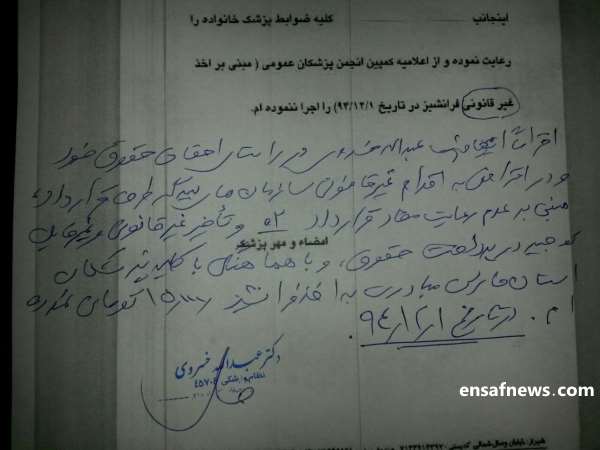 اینجانب کلیه ضوابط پزشک خانواده را
رعایت نموده و از اعلامیه کمپین انجمن پزشکان عمومی ( مبنی بر اخذ
غیر قانونی فرانشیز در تاریخ ۹۴/۱۲/۱) را اجرا ننموده ام.
اقراراً اینجانب عبدالله خسروی در راستای احقاق حقوق خود
و در اعتراض به اقدام غیرقانونی سازمان های بیمه گر طرف قرارداد،
مبنی بر عدم رعایت مفاد قرارداد ۰۲ و تأخیر غیرقانونی و غیرقابل
امضاء و مهر پزشک
توجیه در پرداخت حقوق، و با هماهنگی با کلیه پزشکان
استان فارس مبادرت به اخذ فرانشیز ۱۵۰۰۰ تومانی نموده
ام. در تاریخ ۹۴/۱۲/۱.
دکتر عبداله خسروی
نظام پزشکی
ensafnews.com
شیراز: خیابان وصال شمالی کدپستی